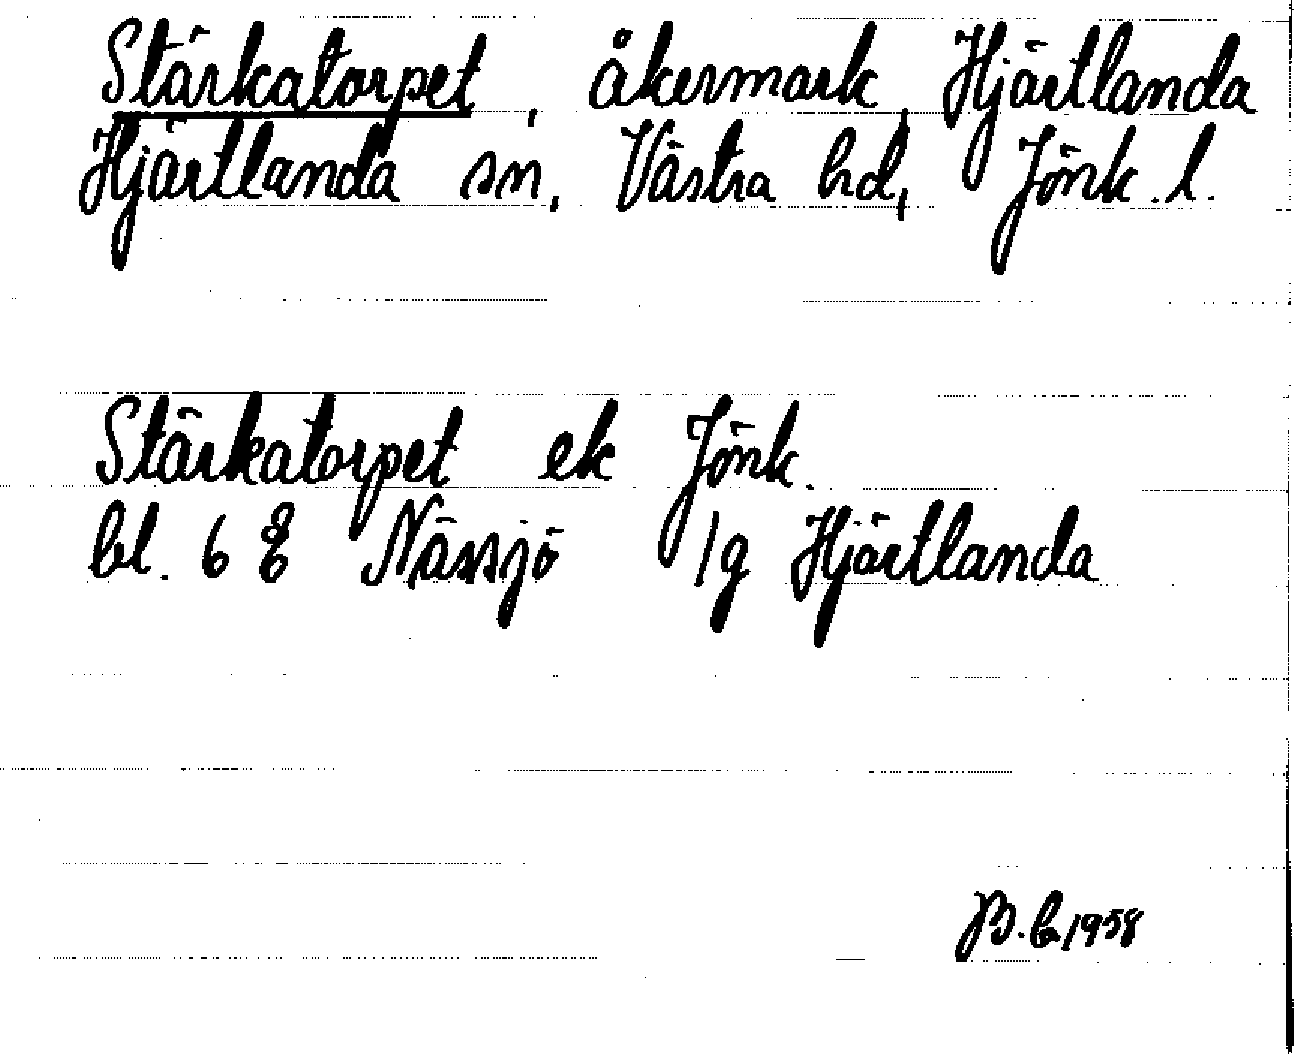 Stärkatorpet, åkermark, Hjärtlanda
Hjärtlanda sn, Västra hd, Jönk. l.
Stärkatorpet ek Jönk.
bl. 6 E Nässjö /g Hjärtlanda
1958